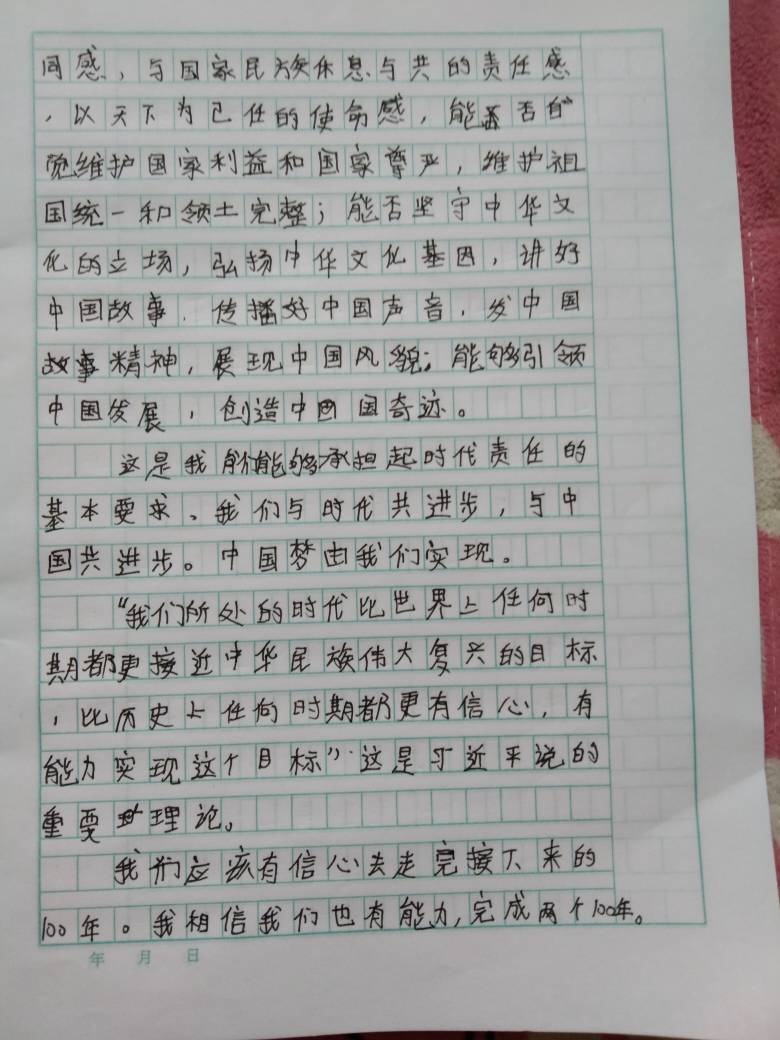 同感，与国家民族休息与共的责任感
，以天下为己任的使命感，能否自
觉维护国家利益和国家尊严，维护祖
国统一和领土完整；能否坚守中华文
化的立场，弘扬中华文化基因，讲好
中国故事，传播好中国声音，发中国
故事精神，展现中国风貌；能够引领
中国发展，创造中国奇迹。
这是我们能够承担起时代责任的
基本要求、我们与时代共进步，与中
国共进步。中国梦由我们实现。
“我们所处的时代比世界上任何时
期都更接近中华民族伟大复兴的目标
，比历史上任何时期都更有信心，有
能力实现这个目标”这是习近平说的
重要理论。
我们应该有信心去走完接下来的
100年。我相信我们也有能力，完成两个100年。
年 月 日